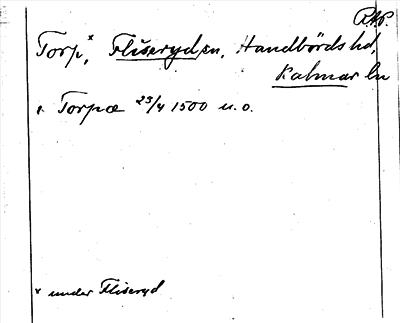 RAP.
Torp,ˣ Fliseryd sn, Handbörds hd,
Kalmar ln
r. Torpæ 23/4 1500 u. o.
x under Fliseryd